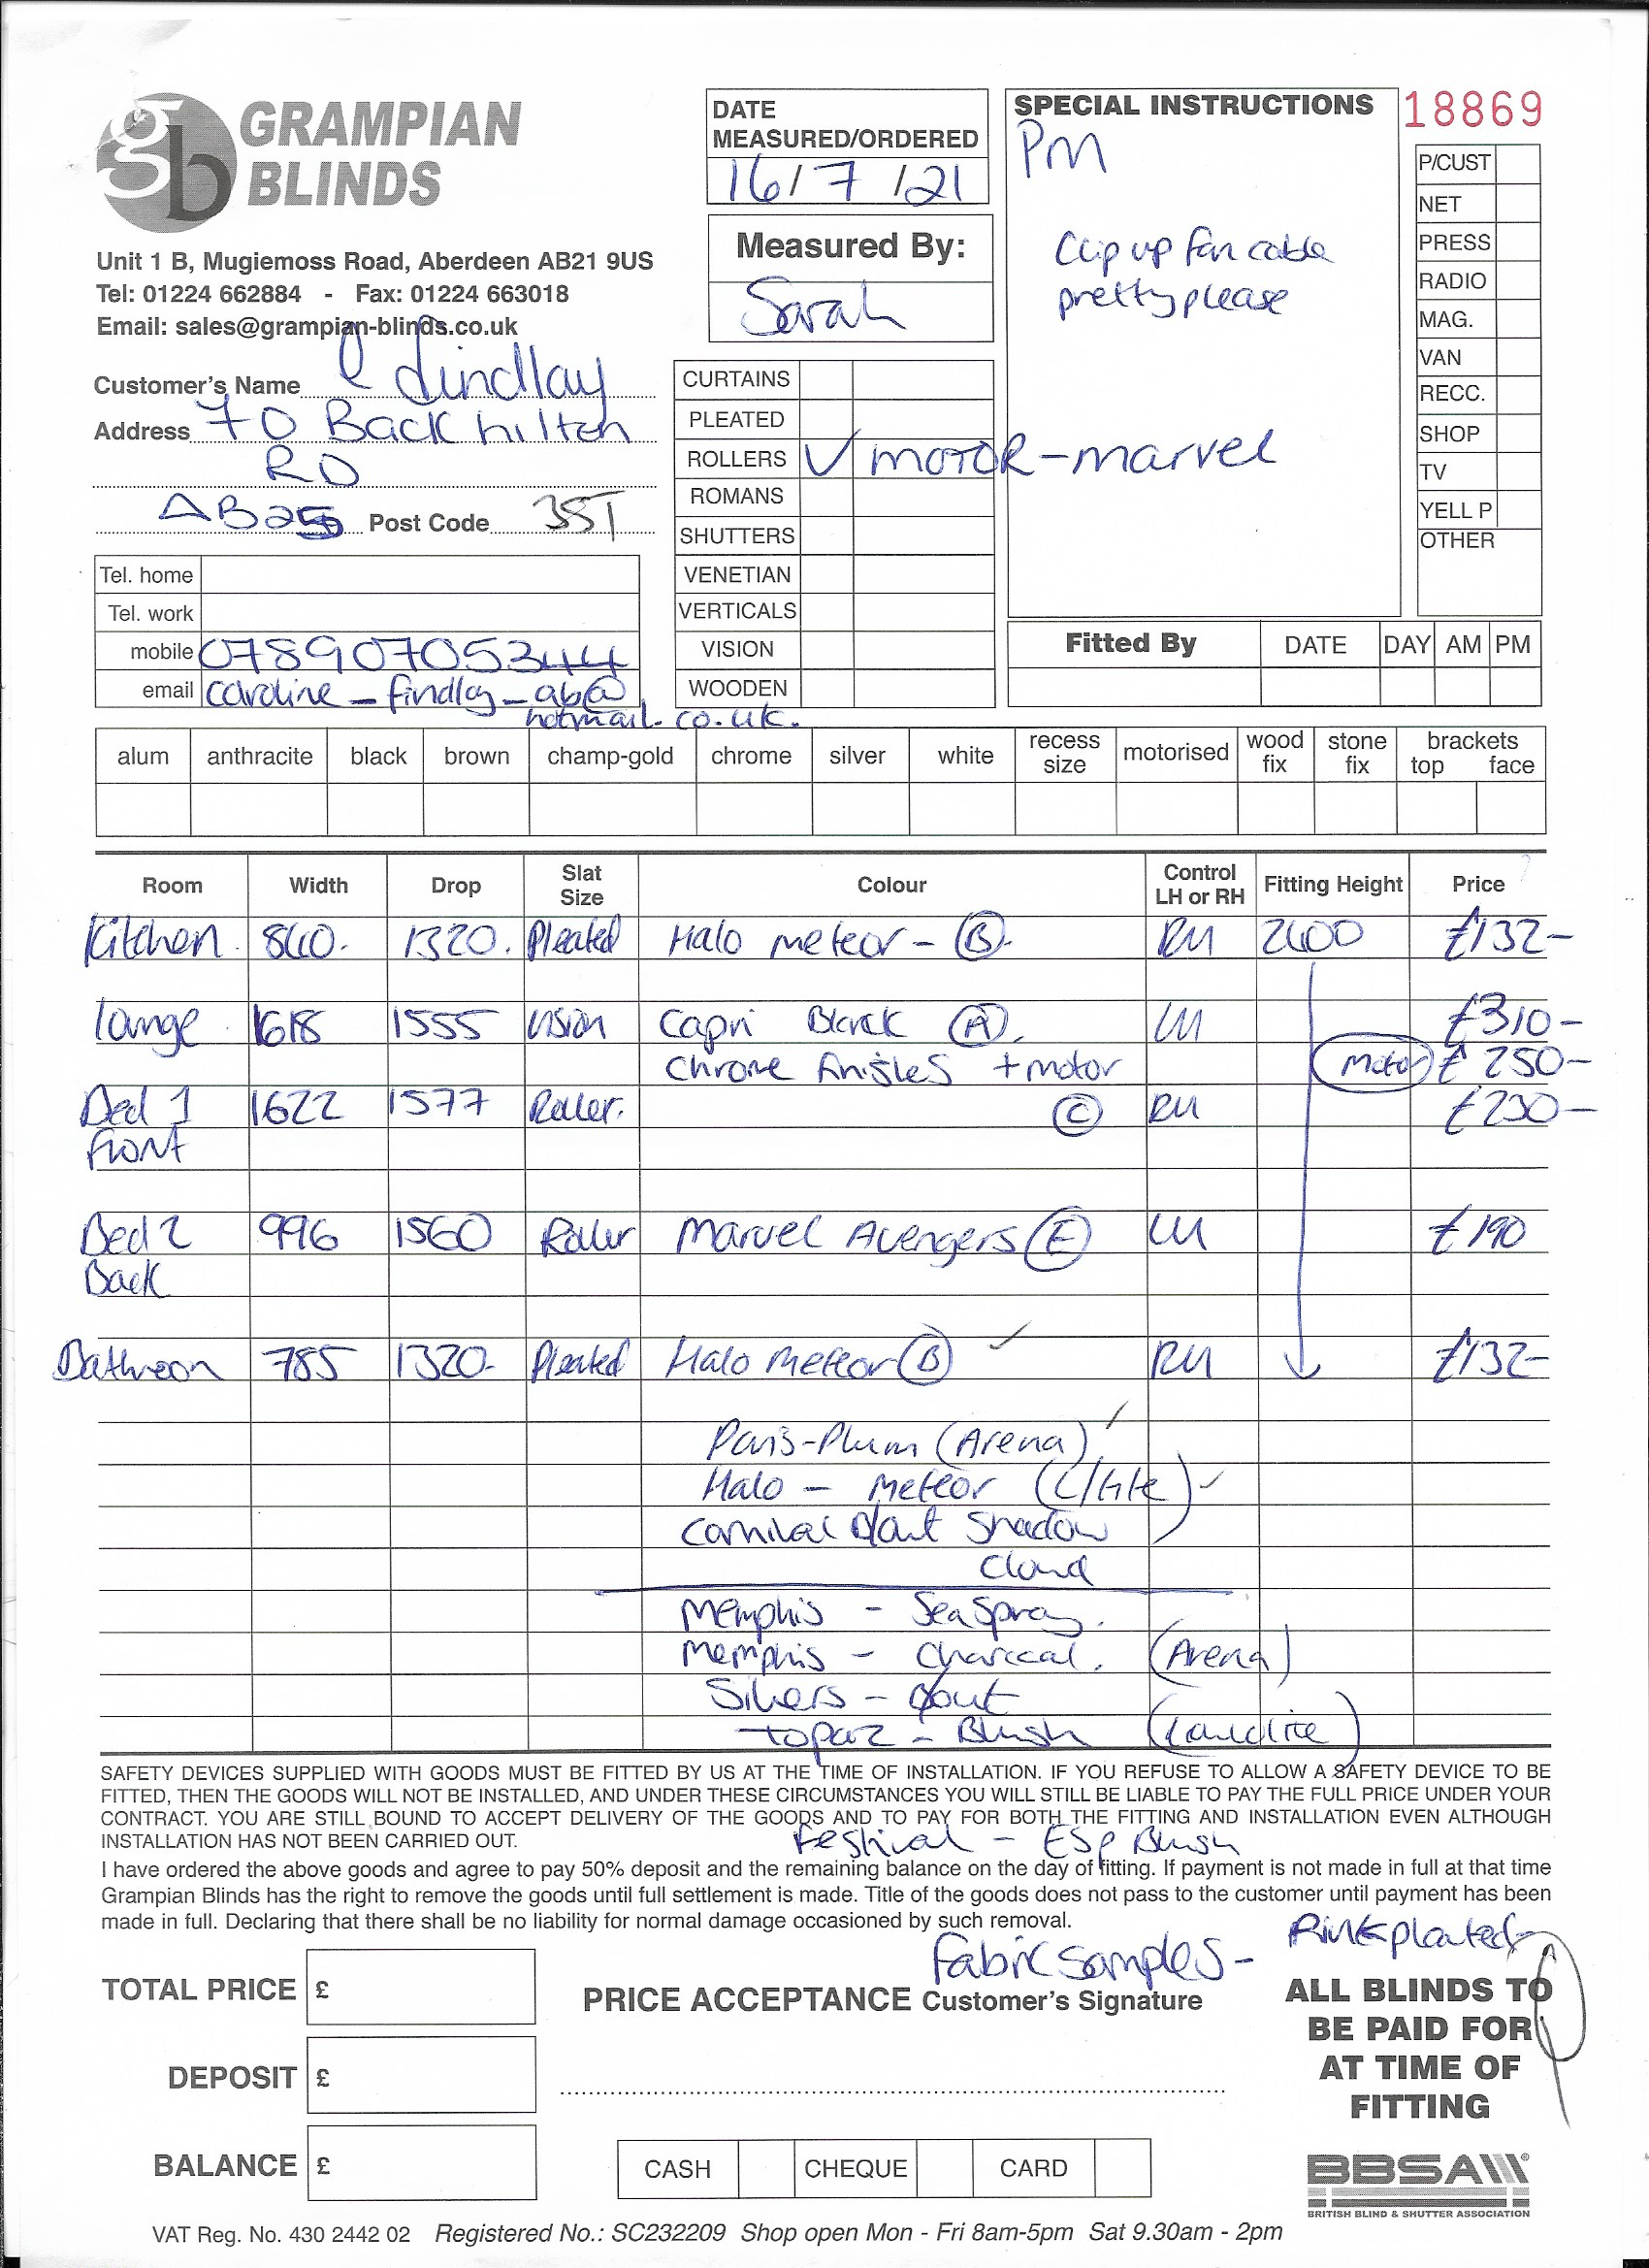 gb GRAMPIAN
BLINDS
Unit 1 B, Mugiemoss Road, Aberdeen AB21 9US
Tel: 01224 662884 - Fax: 01224 663018
Email: sales@grampian-blinds.co.uk
DATE
MEASURED/ORDERED
16/7/21
Measured By:
Sarah
SPECIAL INSTRUCTIONS
PM
Clip up fan cable
pretty please
18869
P/CUST
NET
PRESS
RADIO
MAG.
VAN
RECC.
SHOP
TV
YELL P
OTHER
Customer's Name C Findlay
Address 70 Back hilton
RD
AB25 Post Code 3ST
Tel. home
Tel. work
mobile 07890705344
email caroline_findlay_ab@
hotmail.co.uk.
CURTAINS
PLEATED
ROLLERS ✓ MOTOR-marvel
ROMANS
SHUTTERS
VENETIAN
VERTICALS
VISION
WOODEN
Fitted By DATE DAY AM PM
alum anthracite black brown champ-gold chrome silver white recess size motorised wood fix stone fix brackets top face
Room Width Drop Slat Size Colour Control LH or RH Fitting Height Price
Kitchen 840. 1320. Pleated Halo Meteor - (B). RH 2400 £132-
Lounge 1618 1555 Vision Capri Black (A). LH £310-
Chrome finishes + motor Motor £250-
Bed 1 1622 1577 Roller. (C) RH £230-
Front
Bed 2 996 1560 Roller Marvel Avengers (E) LH £190
Back
Bathroom 785 1320- Pleated Halo Meteor (B) ✓ RH £132-
Paris-Plum (Arena) ✓
Halo - Meteor ✓
Carnival Shadow
Cloud
Memphis - Sea Spray.
Memphis - Charcoal. (Arena)
Silvers -
topaz - Blush (Loudlite)
SAFETY DEVICES SUPPLIED WITH GOODS MUST BE FITTED BY US AT THE TIME OF INSTALLATION. IF YOU REFUSE TO ALLOW A SAFETY DEVICE TO BE
FITTED, THEN THE GOODS WILL NOT BE INSTALLED, AND UNDER THESE CIRCUMSTANCES YOU WILL STILL BE LIABLE TO PAY THE FULL PRICE UNDER YOUR
CONTRACT. YOU ARE STILL BOUND TO ACCEPT DELIVERY OF THE GOODS AND TO PAY FOR BOTH THE FITTING AND INSTALLATION EVEN ALTHOUGH
INSTALLATION HAS NOT BEEN CARRIED OUT.
Festival - ESP Blush
I have ordered the above goods and agree to pay 50% deposit and the remaining balance on the day of fitting. If payment is not made in full at that time
Grampian Blinds has the right to remove the goods until full settlement is made. Title of the goods does not pass to the customer until payment has been
made in full. Declaring that there shall be no liability for normal damage occasioned by such removal.
Fabric samples - Pink pleated
TOTAL PRICE £
PRICE ACCEPTANCE Customer's Signature
DEPOSIT £
BALANCE £
CASH CHEQUE CARD
ALL BLINDS TO
BE PAID FOR
AT TIME OF
FITTING
BBSA
BRITISH BLIND & SHUTTER ASSOCIATION
VAT Reg. No. 430 2442 02 Registered No.: SC232209 Shop open Mon - Fri 8am-5pm Sat 9.30am - 2pm